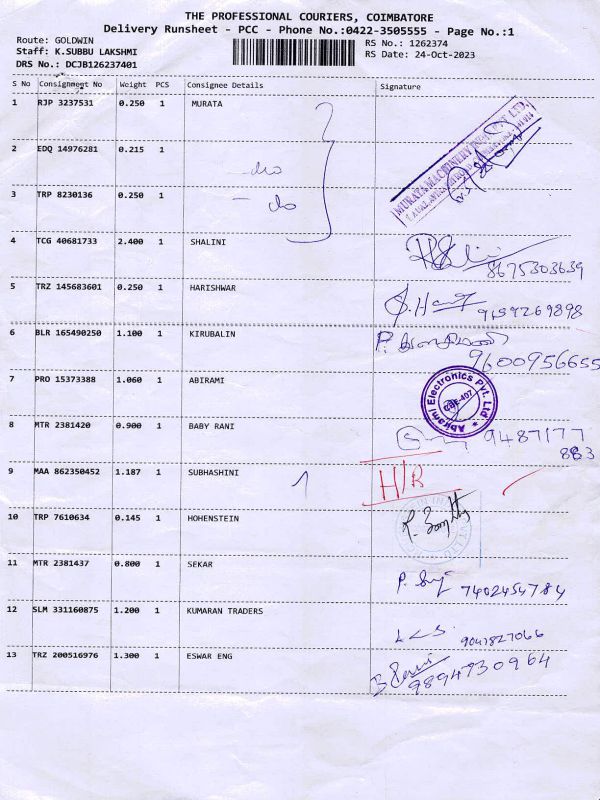 THE PROFESSIONAL COURIERS, COIMBATORE
Delivery Runsheet - PCC - Phone No.:0422-3505555 - Page No.:1
Route: GOLDWIN
RS No.: 1262374
Staff: K.SUBBU LAKSHMI
RS Date: 24-Oct-2023
DRS No.: DCJB126237401
S No Consignment No Weight PCS Consignee Details Signature
1 RJP 3237531 0.250 1 MURATA
2 EDQ 14976281 0.215 1
MURATA MACHINERY PVT LTD.
do
3 TRP 8230136 0.250 1
do
4 TCG 40681733 2.400 1 SHALINI
8675303639
5 TRZ 145683601 0.250 1 HARISHWAR
9159269898
6 BLR 165490250 1.100 1 KIRUBALIN
9600956655
7 PRO 15373388 1.060 1 ABIRAMI
Abirami Electronics Pvt. Ltd
CBE-407
8 MTR 2381420 0.900 1 BABY RANI
9487177
883
9 MAA 862350452 1.187 1 SUBHASHINI 1 H/R
10 TRP 7610634 0.145 1 HOHENSTEIN
11 MTR 2381437 0.800 1 SEKAR
7402454784
12 SLM 331160875 1.200 1 KUMARAN TRADERS
9041827066
13 TRZ 200516976 1.300 1 ESWAR ENG
9894730964